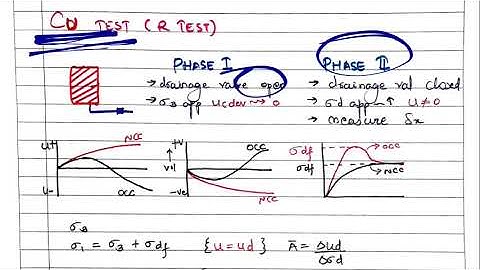 CU TEST (R TEST)
PHASE I
→ drainage valve open
→ σ3 app ucdev ⇝ 0
PHASE II
→ drainage val closed
→ σd app ↑ u≠0
→ measure δx
u+
u-
NCC
OCC
+v
↑
vol
-ve
OCC
NCC
σdf
σdf
→ OCC
→ NCC
σ3
σ1 = σ3 + σdf {u = ud} Ā = Δud/Δσd